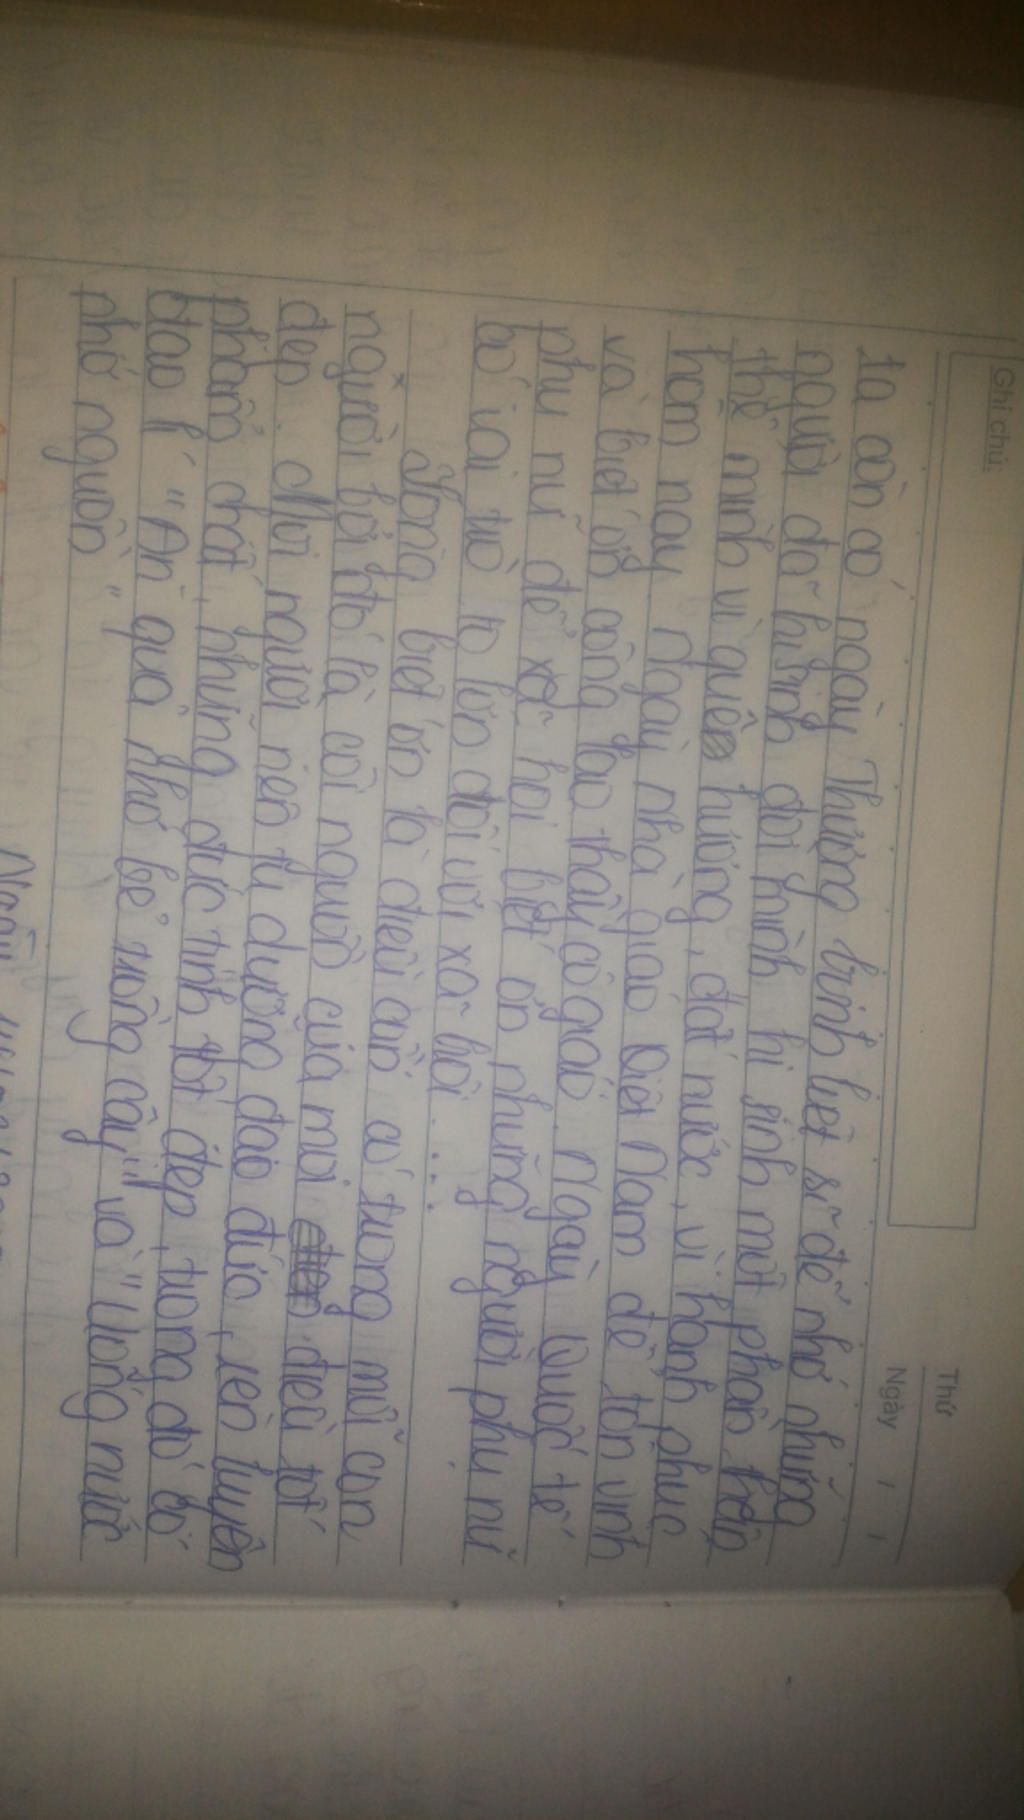 Ghi chú:
Thứ
Ngày / /
ta còn có ngày Thương binh liệt sĩ để nhớ những
người đã hi sinh đời mình hi sinh một phần thân
thể mình vì quên hương, đất nước, vì hạnh phúc
hôm nay. Ngày nhà giáo Việt Nam để tôn vinh
và biết ơn công lao thầy cô giáo. Ngày Quốc tế
phụ nữ để xã hội biết ơn những người phụ nữ
có vai trò to lớn đối với xã hội....
Lòng biết ơn là điều cần có trong mỗi con
người bởi đó là cội người của mỗi điều tốt
đẹp. Mỗi người nên tu dưỡng đạo đức, rèn luyện
phẩm chất, những đức tính tốt đẹp, trong đó có
đạo lí "Ăn quả nhớ kẻ trồng cây" và "Uống nước
nhớ nguồn"